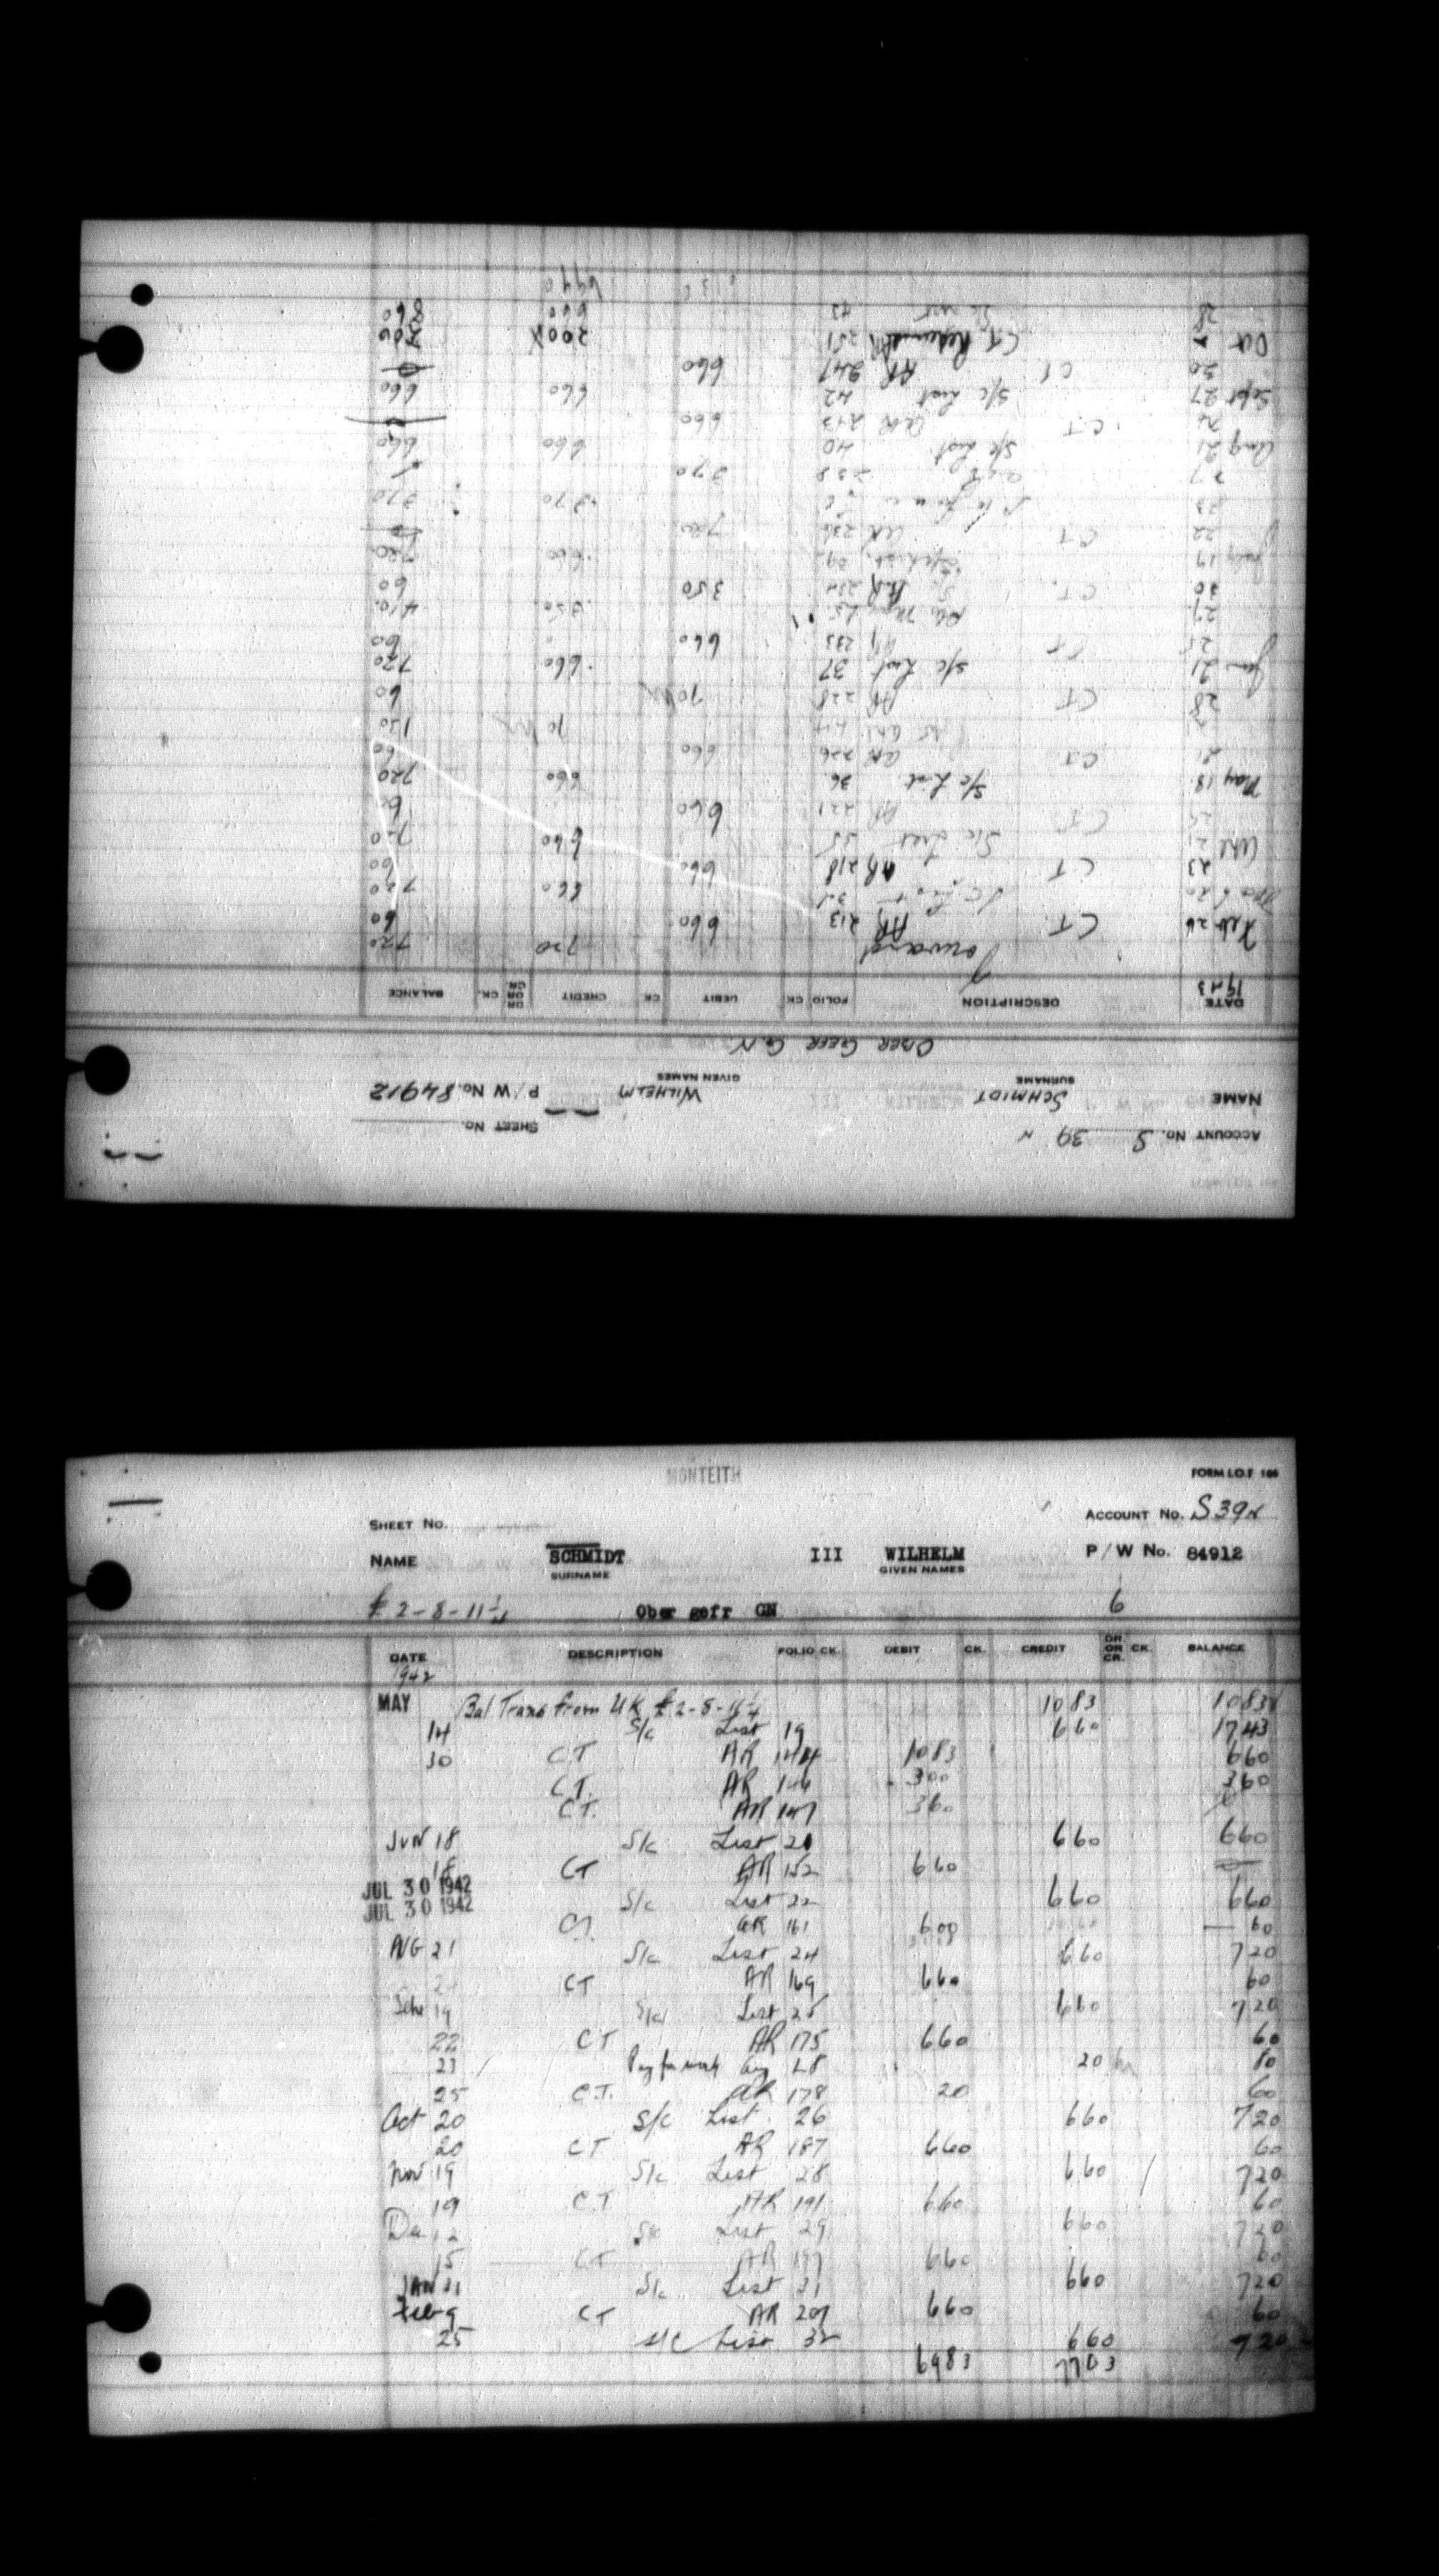 ACCOUNT No. S 39 N
SHEET No.
NAME SCHMIDT WILHELM P/W No. 84912
SURNAME GIVEN NAMES
OBER GEFR G.N
DATE DESCRIPTION FOLIO CK DEBIT CK CREDIT DR OR CR. CK. BALANCE
1943
Forward 720 720
Feb 26 C.T. AR 213 660 60
20 660 720
23 CT AR 218 660 60
21 S/c List 35 660 720
CT AR 221 660 60
May 18 S/c List 36 660 720
21 CT AR 226 660 60
10 130
28 CT AR 228 70 60
Jun 21 S/c List 37 660 720
25 CT AR 233 660 60
27 350 410
30 C.T. AR 234 350 60
July 19 S/c List 39 660 720
22 CT AR 236 720
23 370 370
27 238 370
Aug 21 S/c List 40 660 660
26 C.T. AR 243 660
Sept 27 S/c List 42 660 660
30 CT AR 247 660
Oct CT 251 200
28 43 660 860
6990
MONTEITH
FORM I.O.F 166
SHEET No. ACCOUNT No. S39N
NAME SCHMIDT III WILHELM P/W No. 84912
SURNAME GIVEN NAMES
£ 2-8-11 Ober gefr GN 6
DATE DESCRIPTION FOLIO CK. DEBIT CK. CREDIT DR. OR CR. CK. BALANCE
1942
MAY Bal Trans from UK £2-8-11 1083 1083
14 S/c List 19 660 1743
30 CT AR 144 1083 660
CT. AR 146 300 360
CT. AR 147 360
JUN 18 S/c List 20 660 660
18 CT AR 152 660
JUL 30 1942 S/c List 22 660 660
JUL 30 1942 CT. AR 161 600 60
AUG 21 S/c List 24 660 720
CT AR 169 660 60
Sept 19 S/c List 25 660 720
22 CT AR 175 660 60
23 Pay for work Aug L8 20 80
25 C.T. AR 178 20 60
Oct 20 S/c List 26 660 720
20 CT AR 187 660 60
Nov 19 S/c List 28 660 720
19 CT AR 191 660 60
Dec 12 S/c List 29 660 720
15 CT AR 197 660 60
JAN 21 S/c List 31 660 720
Feb 9 CT AR 207 660 60
25 S/C List 32 660 720
6983 7703